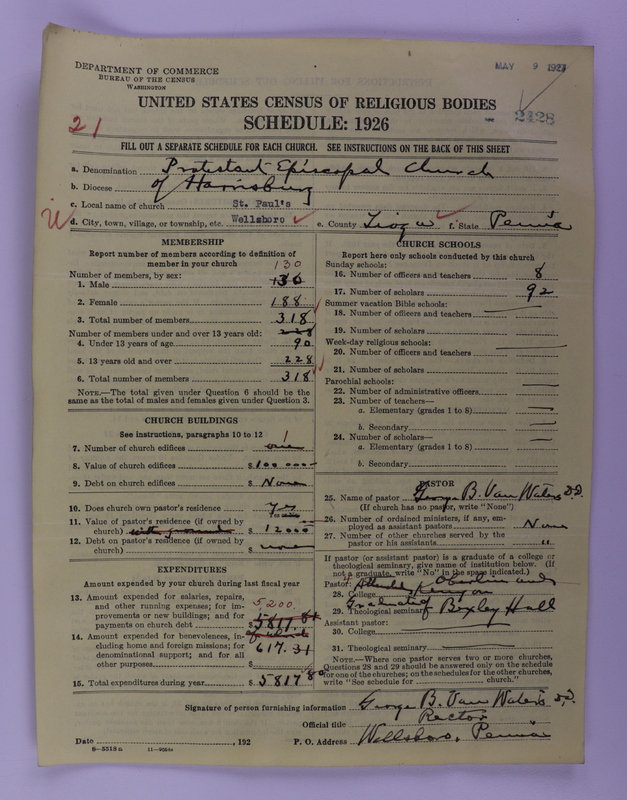 DEPARTMENT OF COMMERCE
BUREAU OF THE CENSUS
WASHINGTON
MAY 9 1927
UNITED STATES CENSUS OF RELIGIOUS BODIES
SCHEDULE: 1926
21
2428
FILL OUT A SEPARATE SCHEDULE FOR EACH CHURCH. SEE INSTRUCTIONS ON THE BACK OF THIS SHEET
a. Denomination Protestant Episcopal Church
b. Diocese of Harrisburg
c. Local name of church St. Paul's
d. City, town, village, or township, etc. Wellsboro e. County Tioga f. State Penna
MEMBERSHIP
Report number of members according to definition of
member in your church
Number of members, by sex: 130
1. Male 130
2. Female 188
3. Total number of members 318
Number of members under and over 13 years old: 228
4. Under 13 years of age 90
5. 13 years old and over 228
6. Total number of members 318
NOTE.—The total given under Question 6 should be the
same as the total of males and females given under Question 3.
CHURCH BUILDINGS
See instructions, paragraphs 10 to 12
7. Number of church edifices one 1
8. Value of church edifices $100 000
9. Debt on church edifices $ None
10. Does church own pastor's residence Yes
11. Value of pastor's residence (if owned by
church) with ground $ 12000
12. Debt on pastor's residence (if owned by
church) $ none
EXPENDITURES
Amount expended by your church during last fiscal year
13. Amount expended for salaries, repairs,
and other running expenses; for im-
provements or new buildings; and for
payments on church debt $ 5200
5817.
14. Amount expended for benevolences, in-
cluding home and foreign missions; for
denominational support; and for all
other purposes $
617.31
15. Total expenditures during year $ 5817 80
CHURCH SCHOOLS
Report here only schools conducted by this church
Sunday schools:
16. Number of officers and teachers 8
17. Number of scholars 92
Summer vacation Bible schools:
18. Number of officers and teachers
19. Number of scholars
Week-day religious schools:
20. Number of officers and teachers
21. Number of scholars
Parochial schools:
22. Number of administrative officers
23. Number of teachers—
a. Elementary (grades 1 to 8)
b. Secondary
24. Number of scholars—
a. Elementary (grades 1 to 8)
b. Secondary
PASTOR
25. Name of pastor George B. Van Waters D.D.
(If church has no pastor, write "None")
26. Number of ordained ministers, if any, em-
ployed as assistant pastors None
27. Number of other churches served by the
pastor or his assistants "
If pastor (or assistant pastor) is a graduate of a college or
theological seminary, give name of institution below. (If
not a graduate, write "No" in the space indicated.)
Pastor: Attended Oberlin and
28. College Kenyon
29. Theological seminary Graduate of Bexley Hall
Assistant pastor:
30. College
31. Theological seminary
NOTE.—Where one pastor serves two or more churches,
Questions 28 and 29 should be answered only on the schedule
for one of the churches; on the schedules for the other churches,
write "See schedule for church."
Signature of person furnishing information George B. Van Waters D.D.
Official title Rector
Date , 192 P. O. Address Wellsboro, Penna
8-5518a 11-9554a